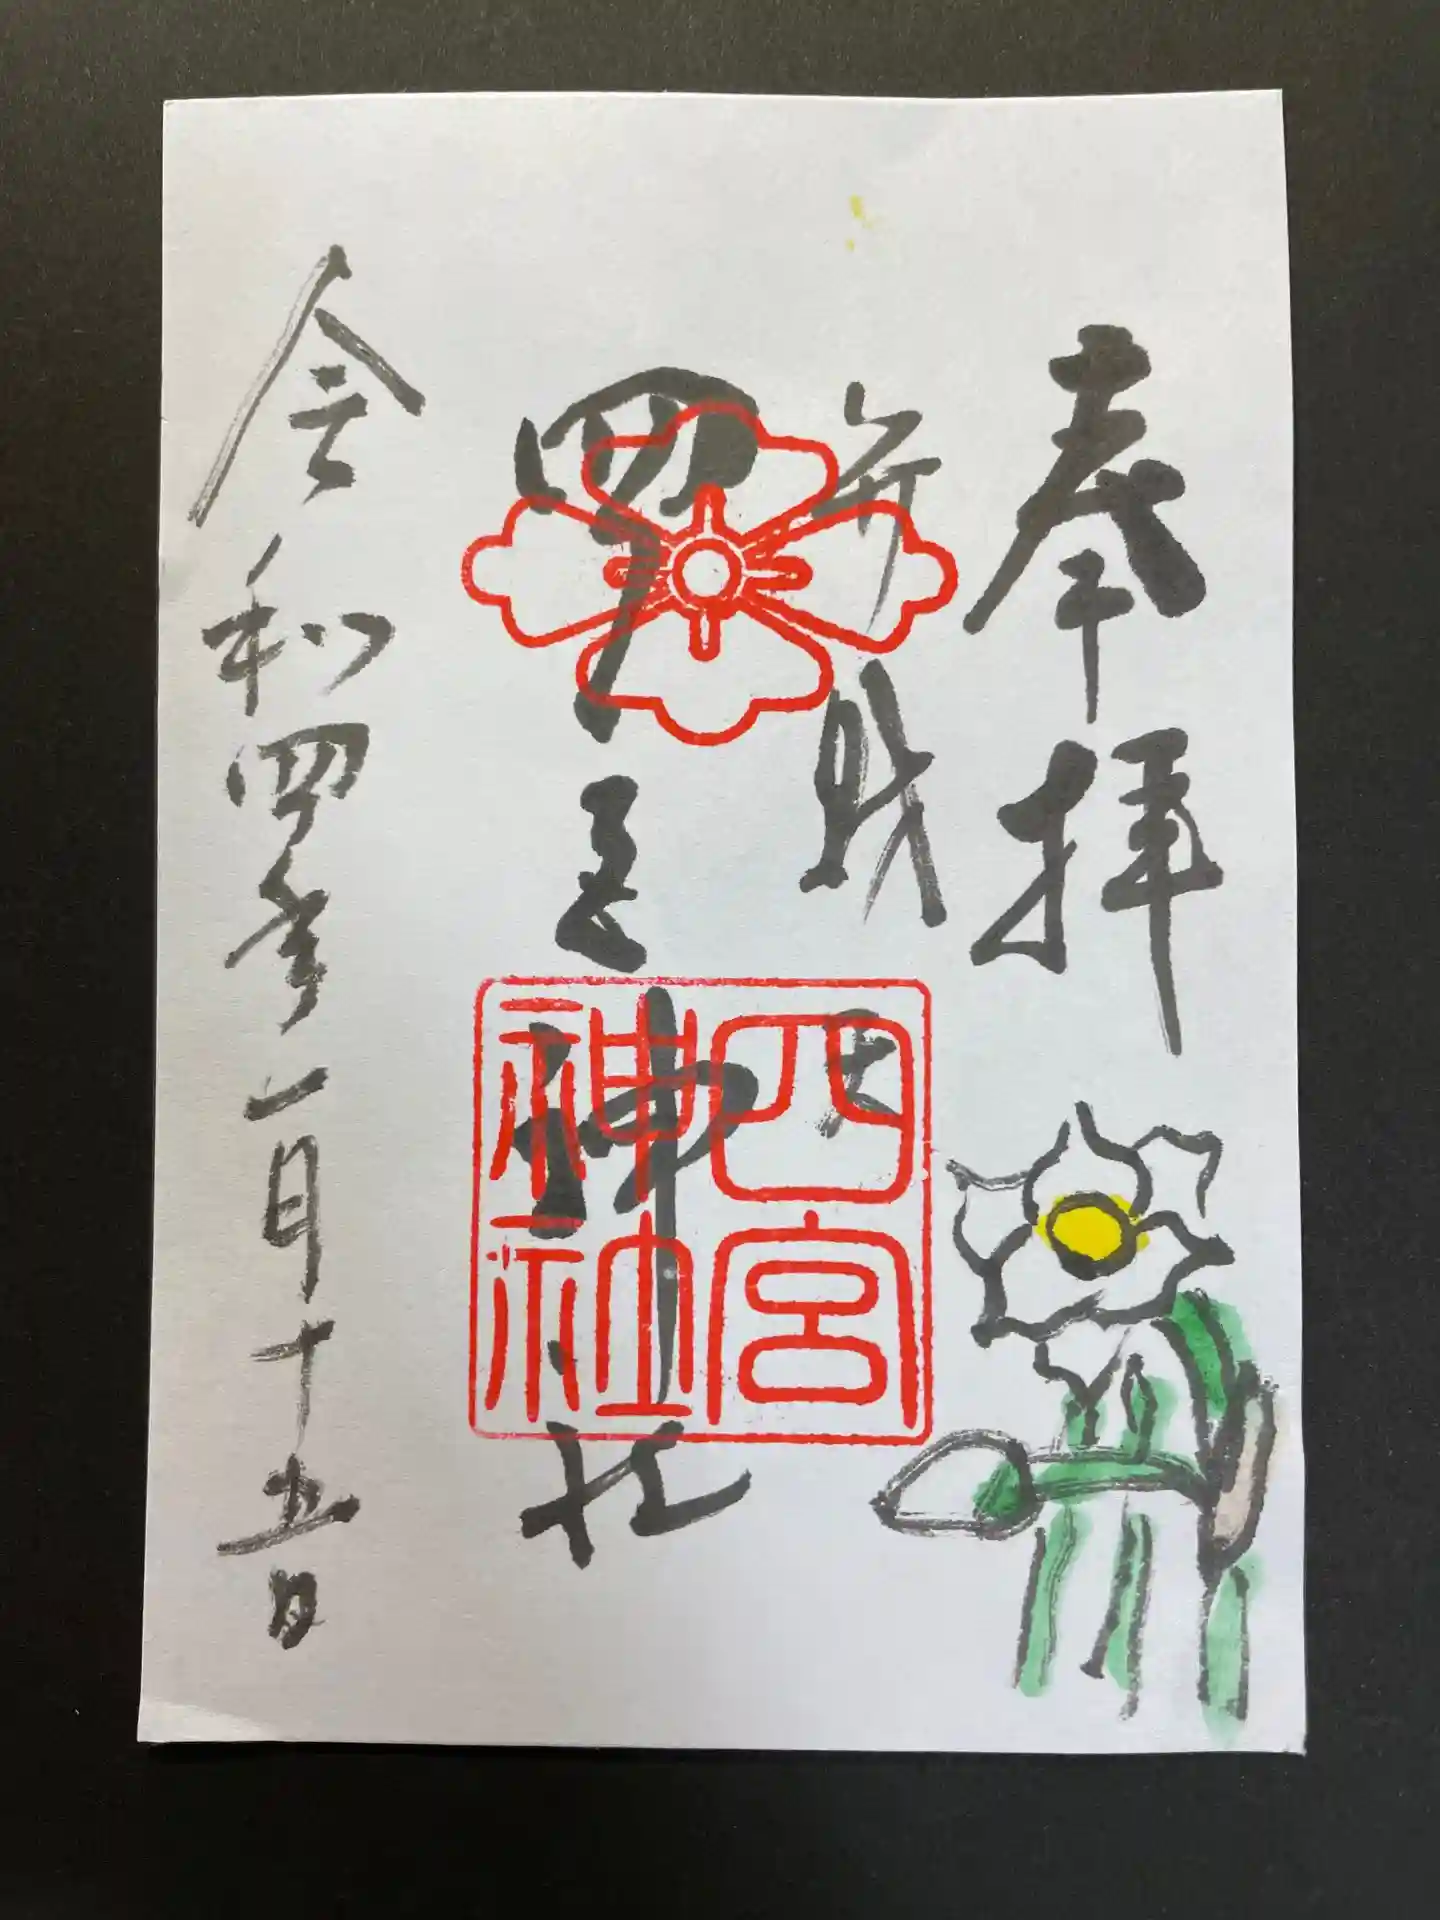 奉拝
弁財天
四宮神社
四宮
神社
令和四年一月十五日